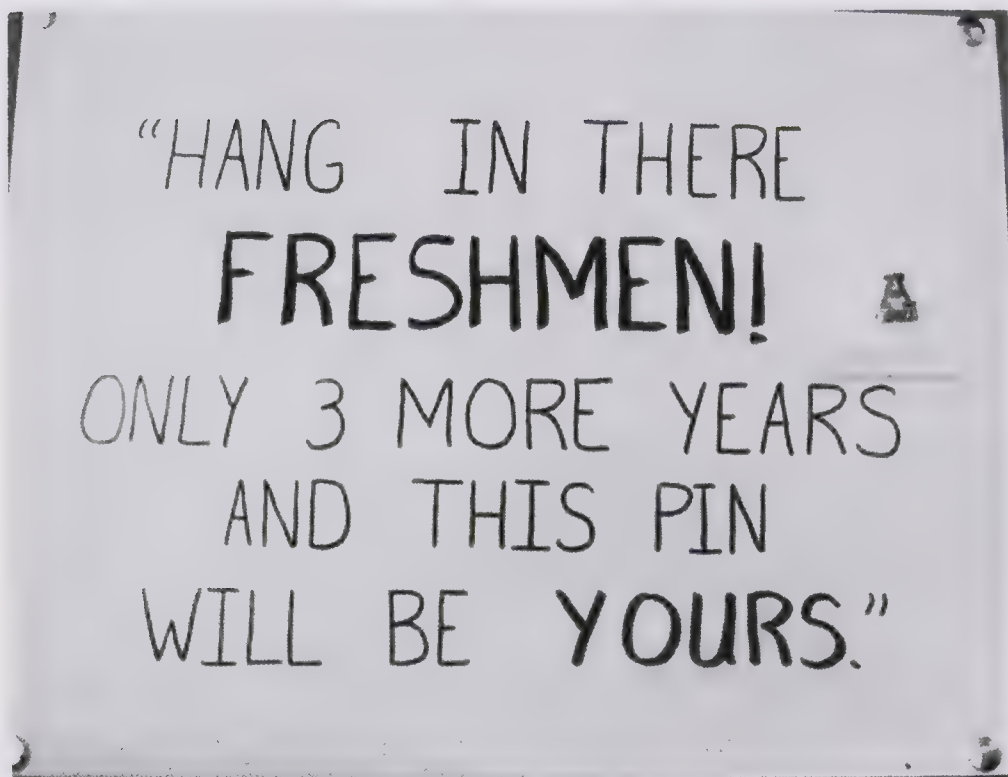 “HANG IN THERE
FRESHMEN!
A
ONLY 3 MORE YEARS
AND THIS PIN
WILL BE YOURS.”